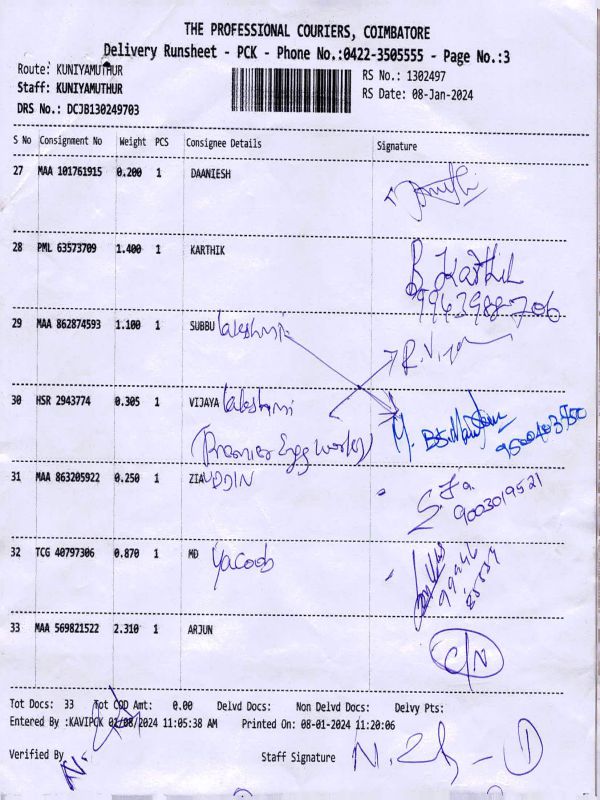 THE PROFESSIONAL COURIERS, COIMBATORE
Delivery Runsheet - PCK - Phone No.:0422-3505555 - Page No.:3
Route: KUNIYAMUTHUR
RS No.: 1302497
Staff: KUNIYAMUTHUR
RS Date: 08-Jan-2024
DRS No.: DCJB130249703
S No Consignment No Weight PCS Consignee Details Signature
27 MAA 101761915 0.200 1 DAANIESH
28 PML 63573709 1.400 1 KARTHIK B. Karthik
9943988706
29 MAA 862874593 1.100 1 SUBBU lakshmi
30 HSR 2943774 0.305 1 VIJAYA lakshmi
(Premier Engg works)
31 MAA 863205922 0.250 1 ZIA UDDIN
9003019521
32 TCG 40797306 0.870 1 MD Yacoob
33 MAA 569821522 2.310 1 ARJUN C/N
Tot Docs: 33 Tot COD Amt: 0.00 Delvd Docs: Non Delvd Docs: Delvy Pts:
Entered By :KAVIPCK 02/08/2024 11:05:38 AM Printed On: 08-01-2024 11:20:06
Verified By Staff Signature